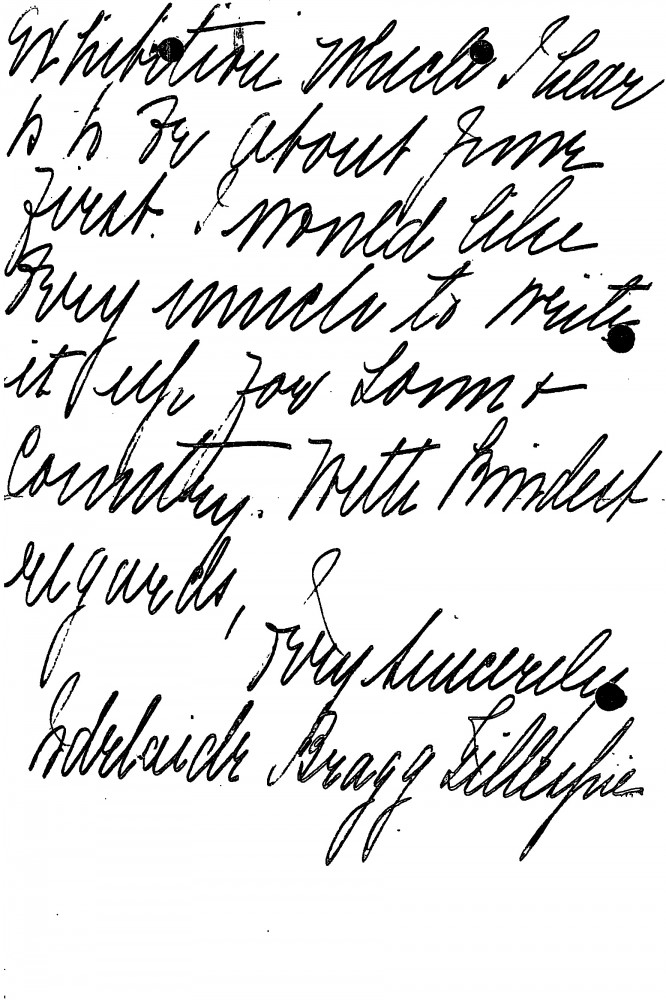 Exhibition which I hear
is to be about June
first. I would like
very much to write
it up for Town &
Country. With kindest
regards,
Very sincerely
Adelaide Bragg Gillespie